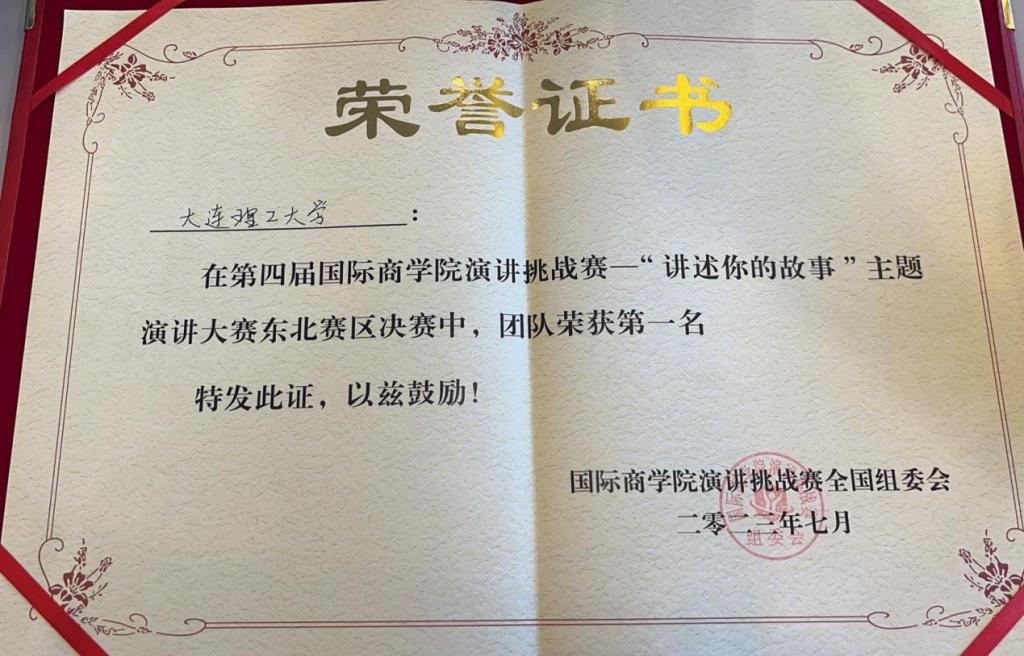 荣誉证书
大连理工大学：
在第四届国际商学院演讲挑战赛—“讲述你的故事”主题
演讲大赛东北赛区决赛中，团队荣获第一名
特发此证，以兹鼓励！
国际商学院演讲挑战赛全国组委会
二零二三年七月
国际商学院演讲挑战赛
组委会